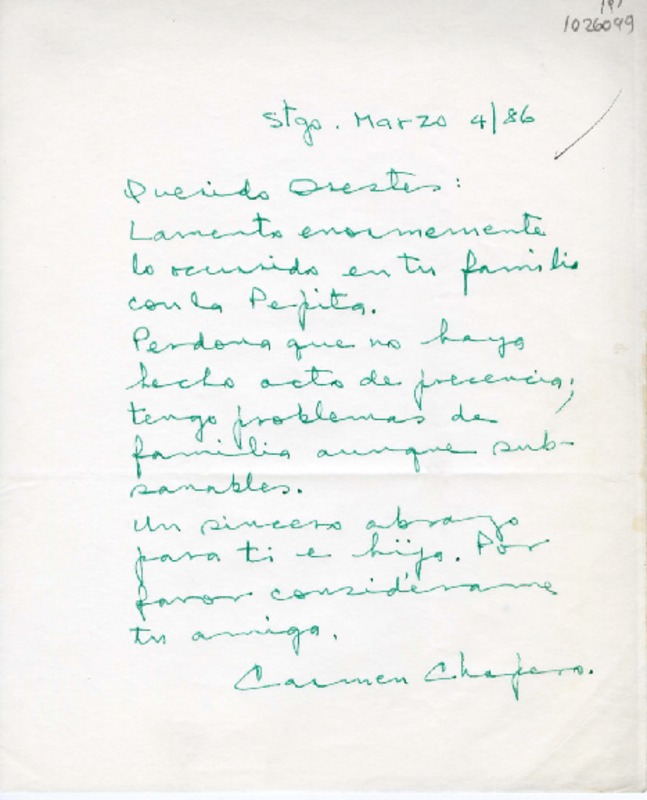 1026099
Stgo. Marzo 4/86
Querido Orestes:
Lamento enormemente
lo ocurrido en tu familia
con la Pepita.
Perdona que no haya
hecho acto de precencia;
tengo problemas de
familia aunque sub-
sanables.
Un sincero abrazo
para ti e hija. Por
favor considérame
tu amiga.
Carmen